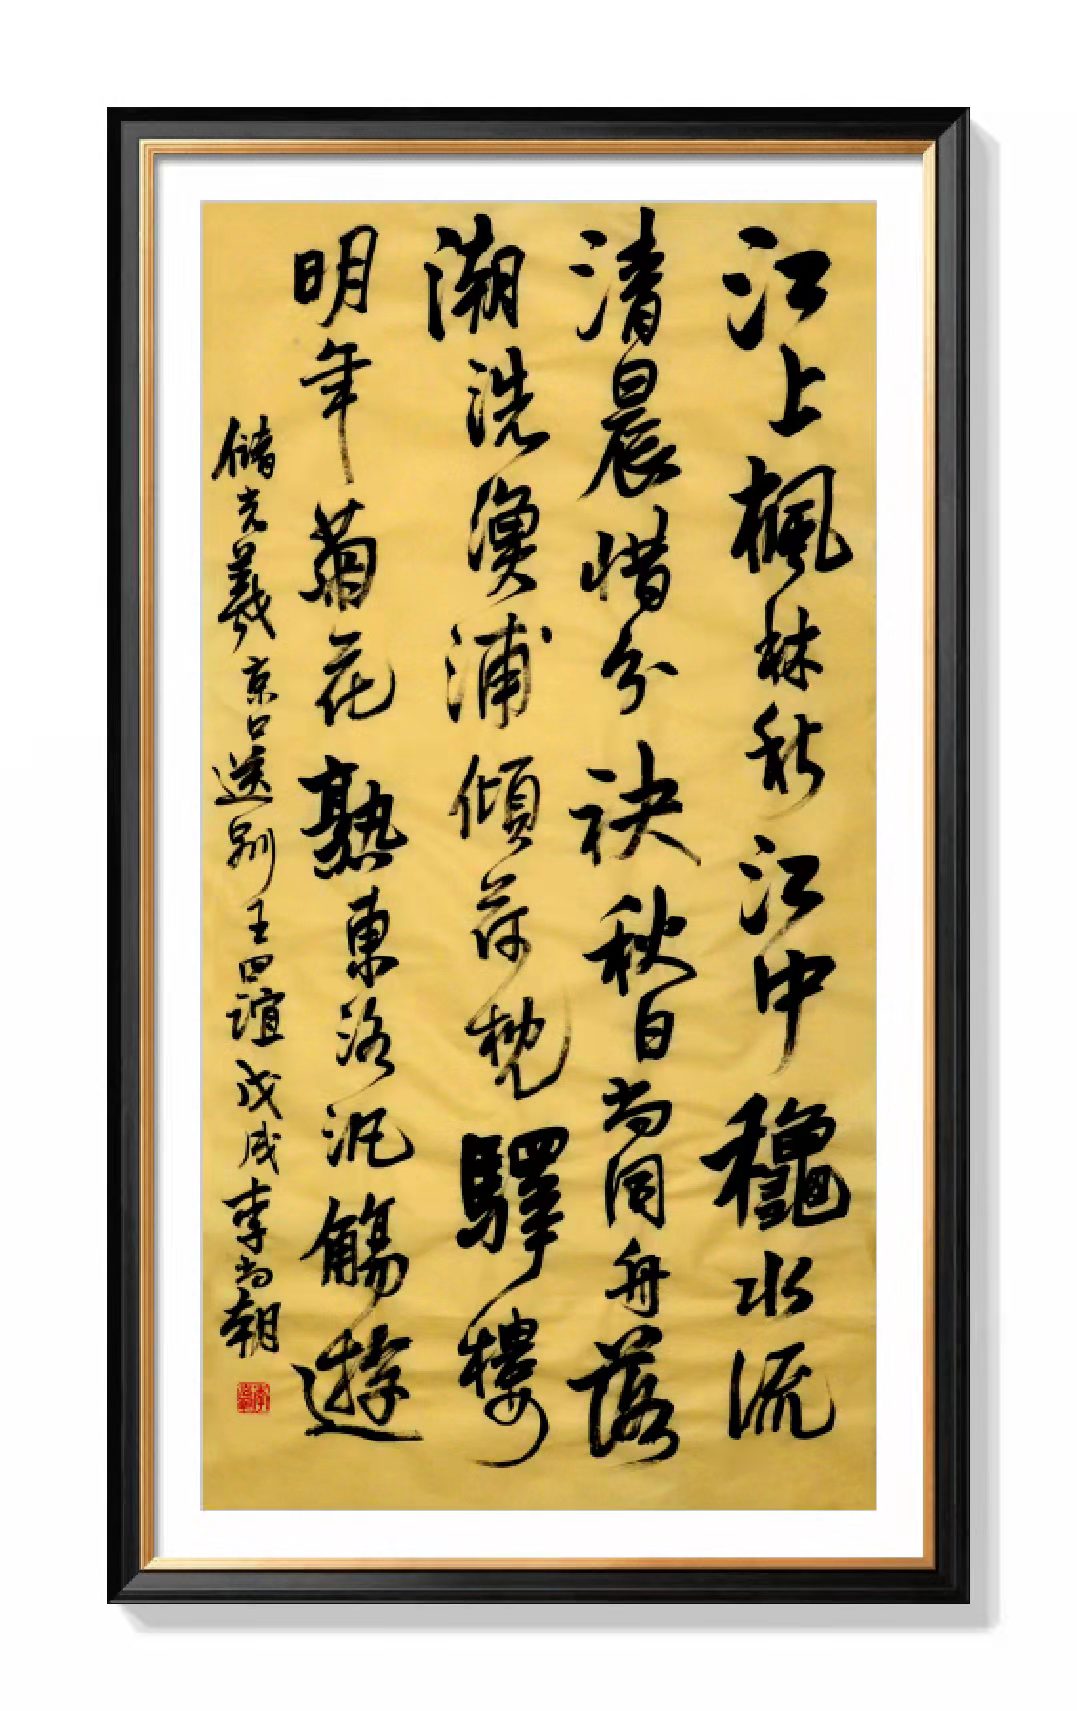 江上楓林秋江中龝水流
清晨惜分袂秋日尚同舟落
潮洗漁浦傾荷枕驛樓
明年菊花熟東洛汎觴遊
儲光羲京口送别王四誼戊戌李尚朝